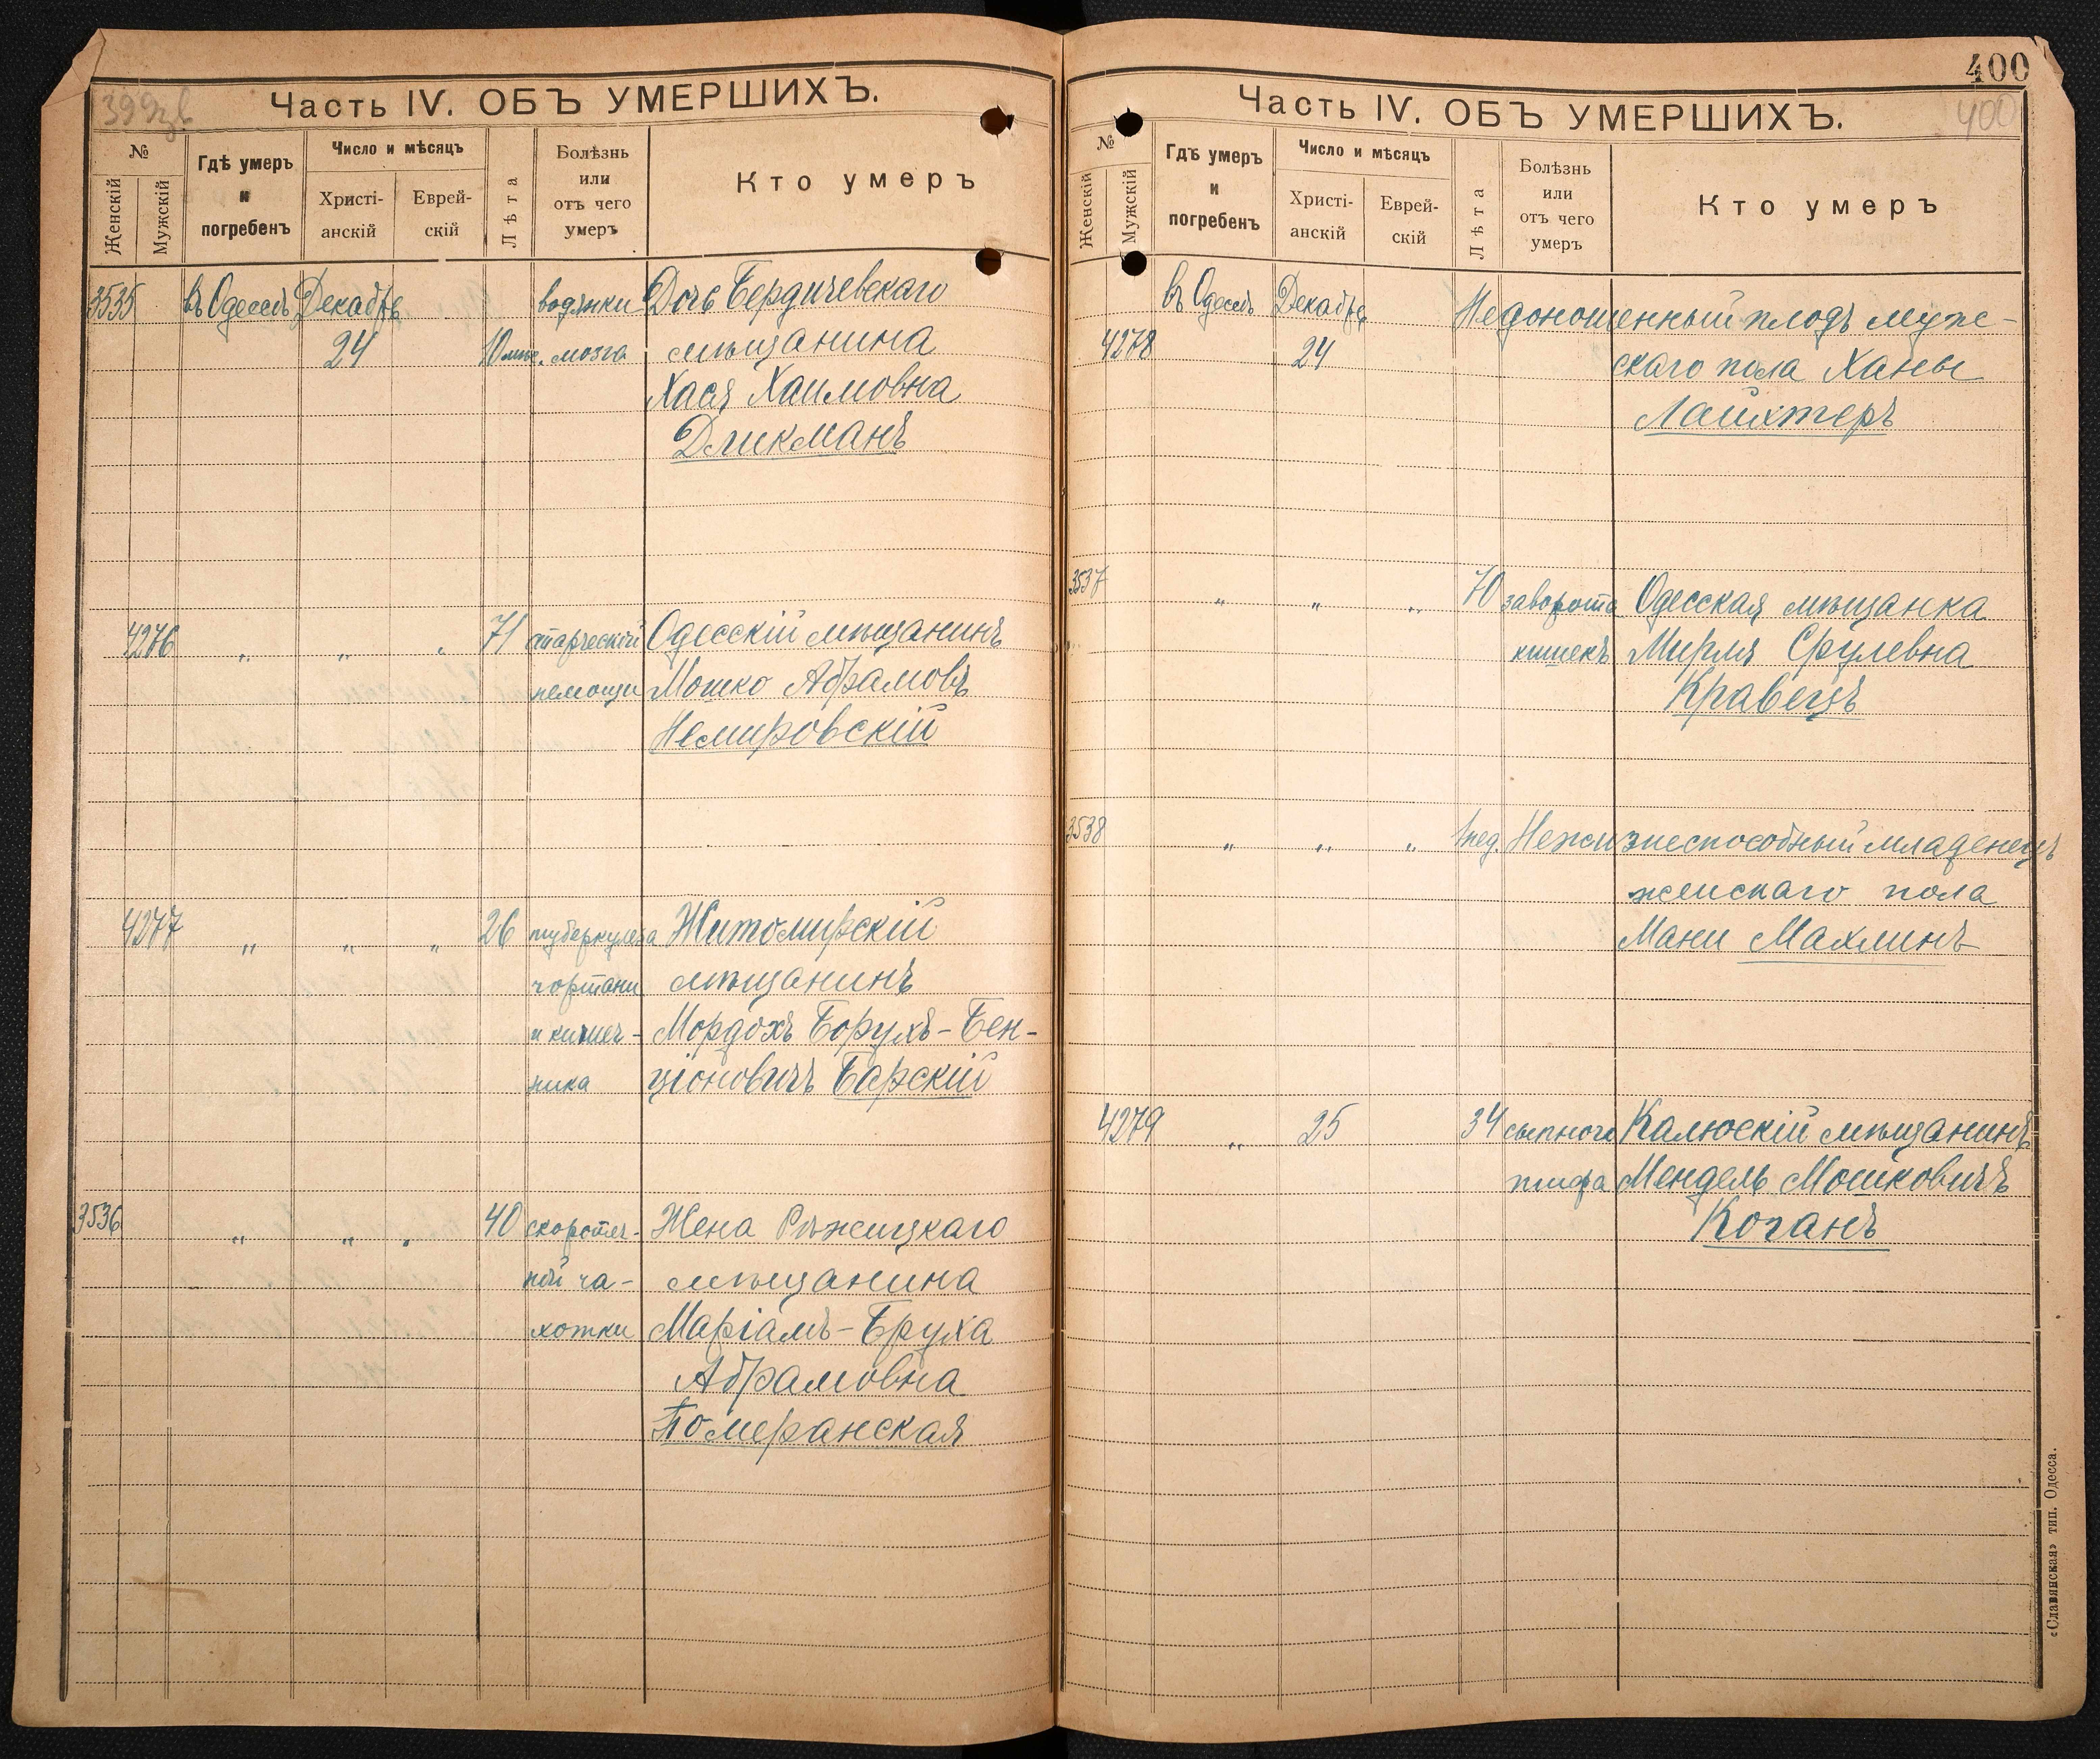 399зв
Часть IV. ОБЪ УМЕРШИХЪ.
№
Женскій
Мужскій
Гдѣ умеръ
и
погребенъ
Число и мѣсяцъ
Христі-
анскій
Еврей-
скій
Лѣта
Болѣзнь
или
отъ чего
умеръ
Кто умеръ
3535 въ Одессѣ Декабрь водянки Дочь Бердичевскаго
24 10 мѣс. мозга мѣщанина
Хася Хаимовна
Дликманъ
4276 " " " 71 старческой Одесскій мѣщанинъ
немощи Мошко Абрамовъ
Немировскій
4277 " " " 26 туберкулеза Житомирскій
гортани мѣщанинъ
и кишеч- Мордохъ Борухъ-Бен-
ника ціоновичъ Барскій
3536 " " " 40 скоротеч- Жена Рѣжицкаго
ной ча- мѣщанина
хотки Маріамъ-Бруха
Абрамовна
Померанская
400
400
Часть IV. ОБЪ УМЕРШИХЪ.
№
Женскій
Мужскій
Гдѣ умеръ
и
погребенъ
Число и мѣсяцъ
Христі-
анскій
Еврей-
скій
Лѣта
Болѣзнь
или
отъ чего
умеръ
Кто умеръ
въ Одессѣ Декабрь Недоношенный плодъ муже-
4278 24 скаго пола Ханы
Лайхтеръ
3537 " " " 70 заворота Одесская мѣщанка
кишекъ Мирля Срулевна
Кравецъ
3538 " " " 1 нед. Нежизнеспособный младенецъ
женскаго пола
Мани Махлинъ
4279 " 25 34 сыпного Калюскій мѣщанинъ
тифа Мендель Мошковичъ
Коганъ
«Славянская» тип. Одесса.